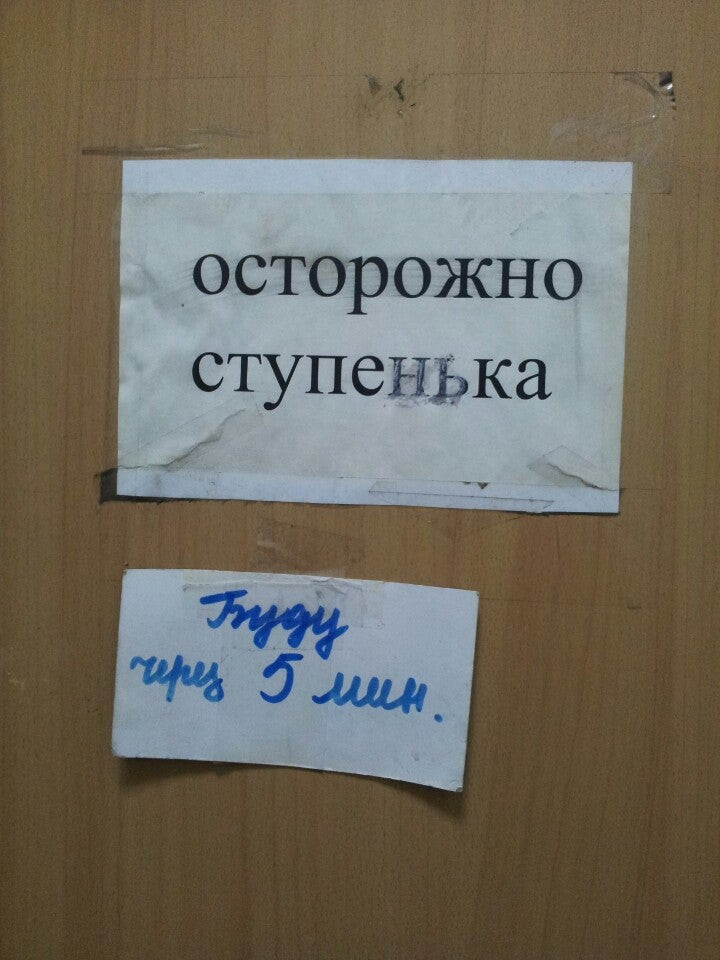 осторожно
ступенька
Буду
через 5 мин.